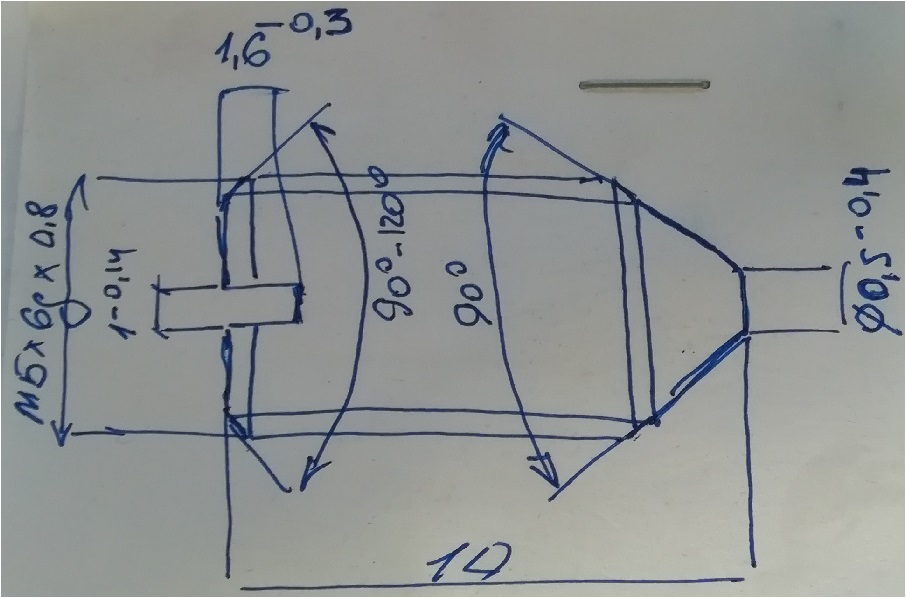 1,6-0,3
М5х6gх0,8
1-0,14
90°-120°
90°
Ø0,5-0,4
10